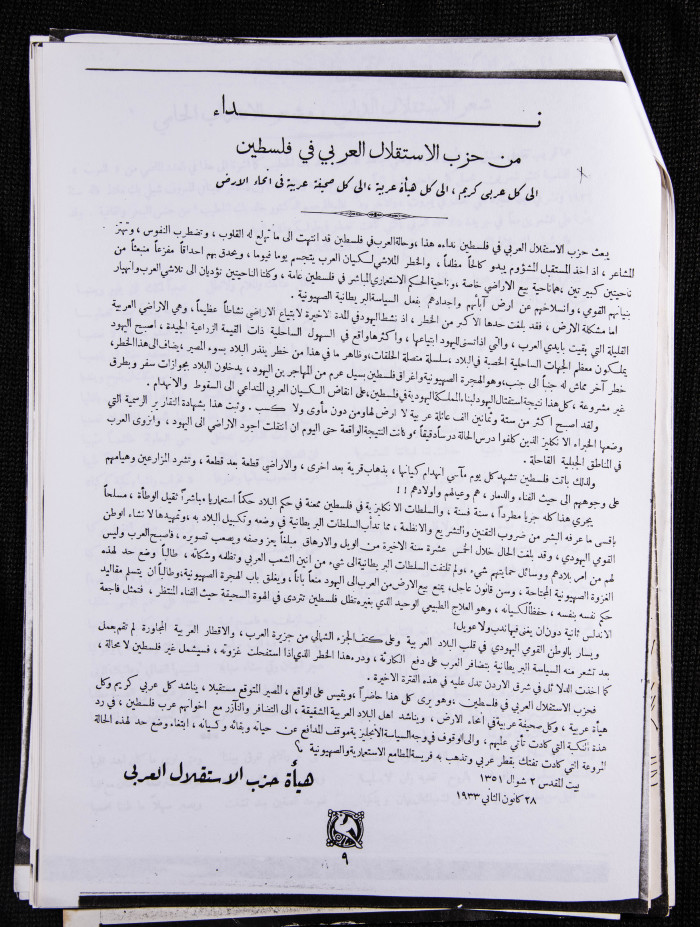 نـــداء
من حزب الاستقلال العربي في فلسطين
الى كل عربي كريم ، الى كل هيأة عربية ، الى كل صحيفة عربية في انحاء الارض
يبعث حزب الاستقلال العربي في فلسطين نداءه هذا ، وحالة العرب في فلسطين قد انتهت الى ما تهلع له القلوب ، وتضطرب النفوس ، وتهتز
المشاعر ، اذ اخذ المستقبل المشؤوم يبدو كالحاً مظلماً ، والخطر الملاشي لكيان العرب يتجسم يوما فيوما ، ويحدق بهم احداقاً مفزعاً منبعثاً من
ناحيتين كبيرتين ، هما ناحية بيع الاراضي خاصة ، وناحية الحكم الاستعماري المباشر في فلسطين عامة ، وكلتا الناحيتين تؤديان الى تلاشي العرب وانهيار
بنيانهم القومي ، وانسلاخهم عن ارض آبائهم واجدادهم بفعل السياسة البريطانية الصهيونية .
اما مشكلة الارض ، فقد بلغت حدها الاكبر من الخطر ، اذ نشط اليهود في المدة الاخيرة لابتياع الاراضي نشاطاً عظيماً ، وهي الاراضي العربية
القليلة التي بقيت بايدي العرب ، والتي اذا تسنى لليهود ابتياعها ، واكثرها واقع في السهول الساحلية ذات القيمة الزراعية الجيدة ، اصبح اليهود
يملكون معظم الجهات الساحلية الخصبة في البلاد ، سلسلة متصلة الحلقات ، وظاهر ما في هذا من خطر ينذر البلاد بسوء المصير ، يضاف الى هذا الخطر ،
خطر آخر مماش له جنباً الى جنب ، وهو الهجرة الصهيونية واغراق فلسطين بسيل عرم من المهاجرين اليهود ، يدخلون البلاد بجوازات سفر وبطرق
غير مشروعة ، كل هذا نتيجة استقتال اليهود لبناء المملكة اليهودية في فلسطين ، على انقاض الكيان العربي المتداعي الى السقوط والانهدام .
ولقد اصبح اكثر من ستة وثمانين الف عائلة عربية لا ارض لها ومن دون مأوى ولا كسب . وثبت هذا بشهادة التقارير الرسمية التي
وضعها الخبراء الانكليز الذين كلفوا درس الحالة درساً دقيقاً ، وكانت النتيجة الواقعة حتى اليوم ان انتقلت اجود الاراضي الى اليهود ، وانزوى العرب
في المناطق الجبلية القاحلة .
ولذلك باتت فلسطين تشهد كل يوم مآسي انهدام كيانها ، بذهاب قرية بعد اخرى ، والاراضي قطعة بعد قطعة ، وتشرد المزارعين وهيامهم
على وجوههم الى حيث الفناء والدمار ، هم وعيالهم واولادهم !!
يجري هذا كله جريا مطرداً ، سنة فسنة ، والسلطات الانكليزية في فلسطين ممعنة في حكم البلاد حكماً استعماريا مباشراً ثقيل الوطأة ، مسلحاً
باقسى ما عرفه البشر من ضروب التقنين والتشريع والانظمة ، مما تدأب السلطات البريطانية في وضعه وتكبيل البلاد به ، وتمهيدها لانشاء الوطن
القومي اليهودي ، وقد بلغت الحال خلال الخمس عشرة سنة الاخيرة من الويل والارهاق مبلغاً يعز وصفه ويصعب تصويره ، فاصبح العرب وليس
لهم من امر بلادهم ووسائل حمايتهم شيء ، ولم تلتفت السلطات البريطانية الى شيء من انين الشعب العربي وتظلمه وشكاته ، طالباً وضع حد لهذه
الغزوة الصهيونية المجتاحة ، وسن قانون عاجل ، يمنع بيع الارض من العرب الى اليهود منعاً باتاً ، ويغلق باب الهجرة الصهيونية ، وطالباً ان يتسلم مقاليد
حكم نفسه بنفسه ، حفظاً لكيانه ، وهو العلاج الطبيعي الوحيد الذي بغيره تظل فلسطين تتردى في الهوة السحيقة حيث الفناء المنتظر ، فتمثل فاجعة
الاندلس ثانية دون ان يغني فيها ندب ولا عويل !
ويسار بالوطن القومي اليهودي في قلب البلاد العربية وعلى كتف الجزء الشمالي من جزيرة العرب ، والاقطار العربية المجاورة لم تقم بعمل
بعد تشعر منه السياسة البريطانية بتضافر العرب على دفع الكارثة ، ودره هذا الخطر الذي اذا استفحلت غزوته ، فسيشمل غير فلسطين لا محالة ،
كما اخذت الدلائل في شرق الاردن تدل عليه في هذه الفترة الاخيرة .
فحزب الاستقلال العربي في فلسطين ، وهو يرى كل هذا حاضراً ، ويقيس على الواقع ، المصير المتوقع مستقبلا ، يناشد كل عربي كريم وكل
هيأة عربية ، وكل صحيفة عربية في أنحاء الارض ، ويناشد اهل البلاد العربية الشقيقة ، الى التضافر والتآزر مع اخوانهم عرب فلسطين ، في رد
هذه النكبة التي كادت تأتي عليهم ، والى الوقوف في وجه السياسة الانجليزية موقف المدافع عن حياته وبقائه وكيانه ، ابتغاء وضع حد لهذه الحالة
المروعة التي كادت تفتك بقطر عربي وتذهب به فريسة المطامع الاستعمارية والصهيونية ؟
بيت المقدس ٢ شوال ١٣٥١
٢٨ كانون الثاني ١٩٣٣
هيأة حزب الاستقلال العربي
٩